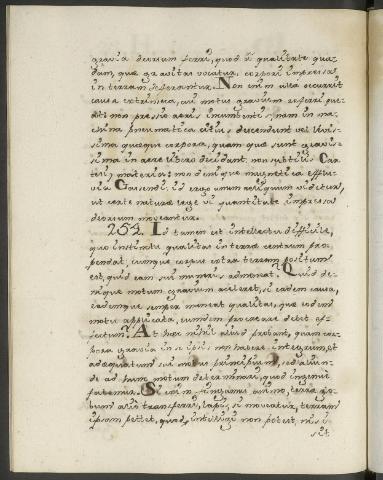 gravia deorsum ferri, quod à qualitate qua-
dam, quæ gravitas vocatur, corpori impressa
in terram deferantur. Non enim ulla occurrit
causa extrinseca, cui motus gravium referri pue-
at: non pressio aeris incumbentis, nam in ma-
china pneumatica citius descendunt vel levis-
sima quæque corpora, quam quæ sunt gravis-
sima in aere libero decidant: non subtilis Car-
tesii materies: non denique magnetica efflu-
via Gassendi: id ergo unum reliquum videtur,
ut certe naturæ lege vi qualitate impressa
deorsum moveantur.
253. Id tamen est intellectu difficile,
quo instinctu qualitas in terræ centrum pro-
pendat, cumque corpus extra terram positum
est, quid eam sui muneris admoneat? Quid de-
nique motum gravium acceleret, si eadem causa,
eademque semper maneat qualitas, quæ eodem
motu applicata, eumdem procreare debet ef-
fectum? At hæc nihil aliud probant, quam cor-
pora gravia in se ipsis non habere integrum, et
adæquatum sui motus principium, sed aliun-
de ad hunc motum determinari, quod ingenue
fatemur. Si enim fingamus animo, terræ glo-
bum alio transferri, lapis si moveatur, terram
ipsam petet, quod intelligi non potest, nisi
sit